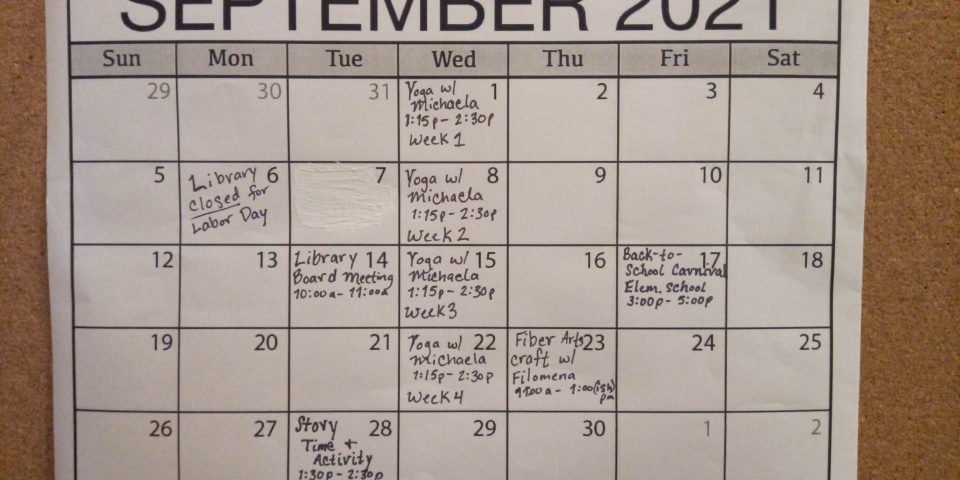 SEPTEMBER 2021
Sun Mon Tue Wed Thu Fri Sat
29 30 31 1 2 3 4
Yoga w/
Michaela
1:15p - 2:30p
Week 1
5 6 7 8 9 10 11
Library
closed for
Labor Day
Yoga w/
Michaela
1:15p - 2:30p
Week 2
12 13 14 15 16 17 18
Library
Board Meeting
10:00a - 11:00a
Yoga w/
Michaela
1:15p - 2:30p
Week 3
Back-to-
School Carnival
Elem. School
3:00p - 5:00p
19 20 21 22 23 24 25
Yoga w/
Michaela
1:15p - 2:30p
Week 4
Fiber Arts
craft w/
Filomena
1:00(ish)
pm
26 27 28 29 30 1 2
Story
Time +
Activity
1:30p - 2:30p